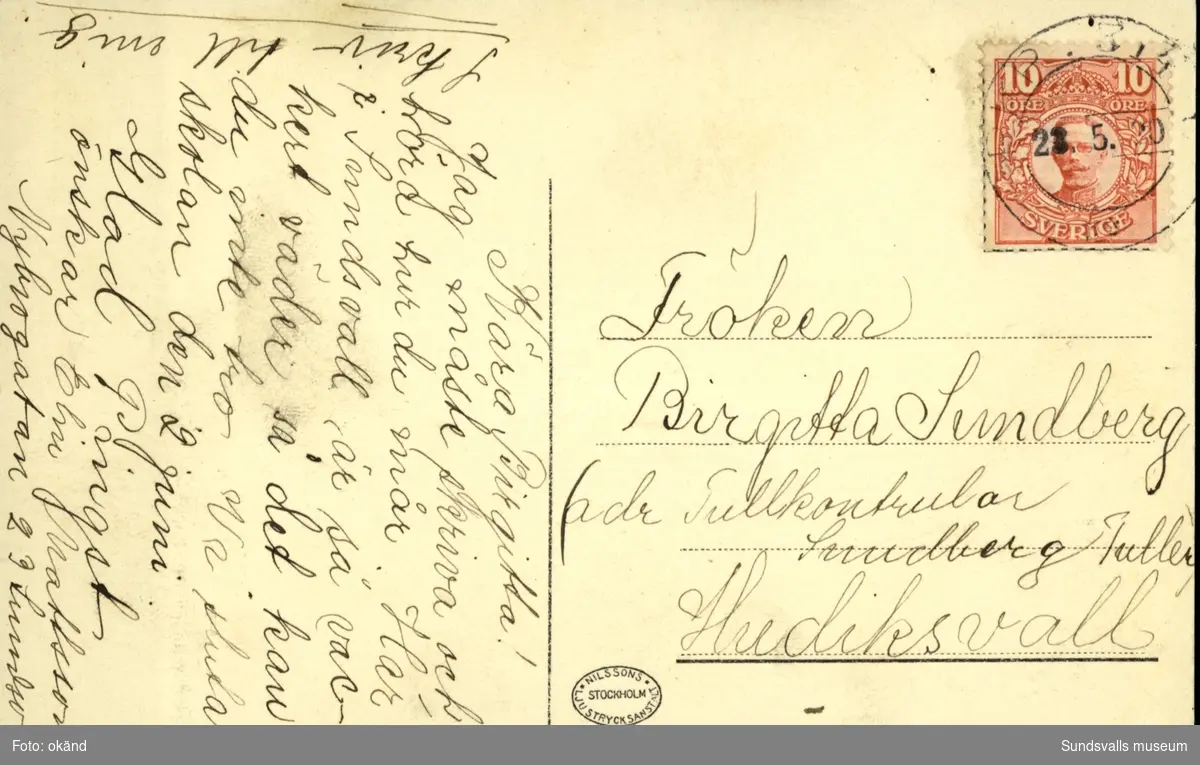 Kjära Birgitta!
Jag måste skriva och
hörd hur du mår. Här
i Sundsvall är så vac-
kert väder så det kan
du inte tro Vi sluta
skolan den 2 juni.
Glad Pingst
önskar Elin Mattsson
Nybrogatan 23 Sundsv
Skriv
till mig
10 10
ÖRE ÖRE
SVERIGE
23. 5. 20
Fröken
Birgitta Sundberg
(adr Tullkontrulör
Sundberg Tullen
Hudiksvall
NILSSONS
STOCKHOLM
LJUSTRYCKSANSTALT
Foto: okänd
Sundsvalls museum